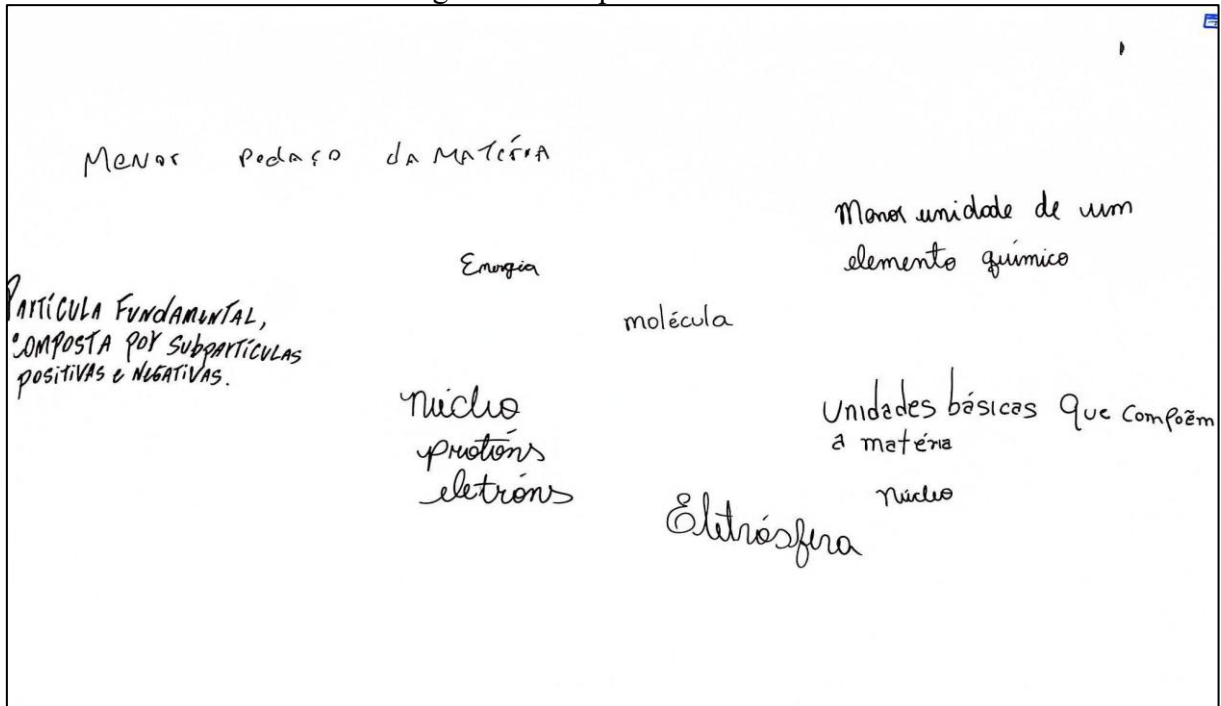 Menor pedaço da matéria
Menor unidade de um
elemento químico
Energia
Partícula Fundamental,
composta por subpartículas
positivas e negativas.
molécula
núcleo
protóns
eletróns
Unidades básicas que compoẽm
a matéria
núcleo
Eletrósfera